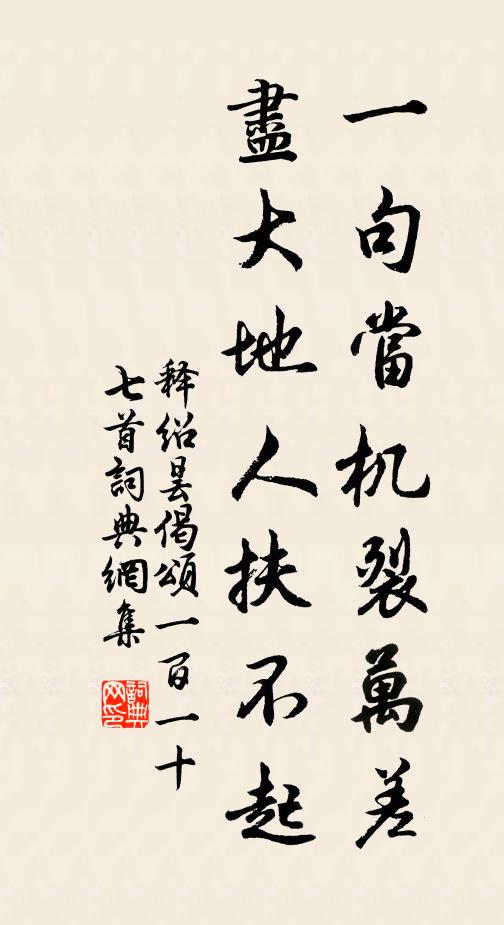 一句當机裂萬差
盡大地人扶不起
释绍昙偈頌一百一十
七首詞典網集
詞典
网印